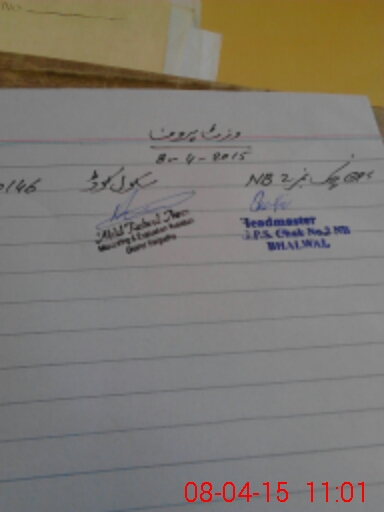 وزٹ پروف
8-4-2015
GPS چک نمبر 2 NB سکول کوڈ 0146
Headmaster
G.P.S. Chak No.2 NB
BHALWAL
Monitoring & Evaluation Assistant
08-04-15 11:01